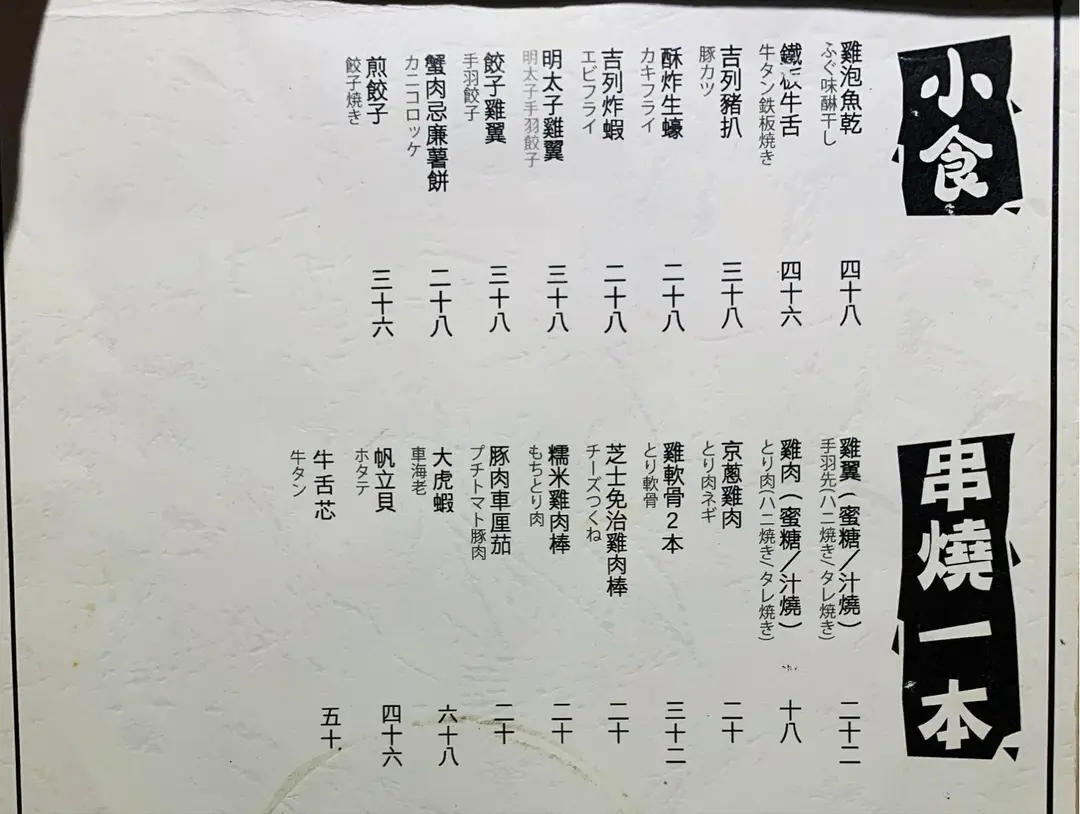 小食
雞泡魚乾
ふぐ味醂干し
四十八
鐵板牛舌
牛タン鉄板焼き
四十六
吉列豬扒
豚カツ
三十八
酥炸生蠔
カキフライ
二十八
吉列炸蝦
エビフライ
二十八
明太子雞翼
明太子手羽餃子
三十八
餃子雞翼
手羽餃子
三十八
蟹肉忌廉薯餅
カニコロッケ
二十八
煎餃子
餃子焼き
三十六
串燒一本
雞翼(蜜糖/汁燒)
手羽先(ハニ焼き/タレ焼き)
二十二
雞肉(蜜糖/汁燒)
とり肉(ハニ焼き/タレ焼き)
十八
京蔥雞肉
とり肉ネギ
二十
雞軟骨2本
とり軟骨
三十二
芝士免治雞肉棒
チーズつくね
二十
糯米雞肉棒
もちとり肉
二十
豚肉車厘茄
プチトマト豚肉
二十
大虎蝦
車海老
六十八
帆立貝
ホタテ
四十六
牛舌芯
牛タン
五十